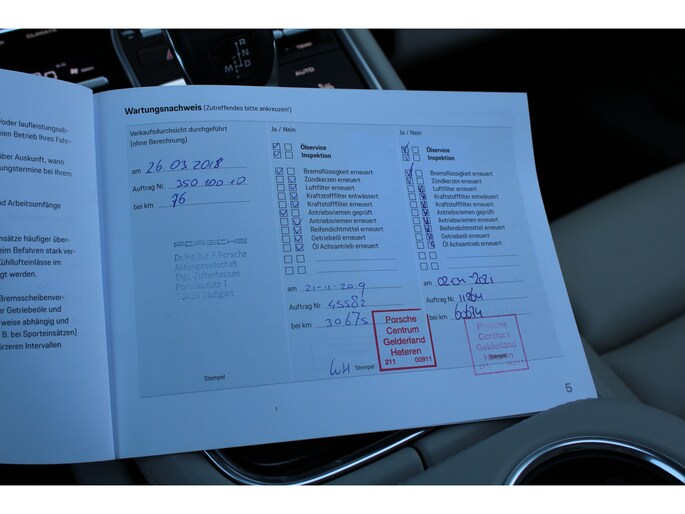 CLIMATE
R
N
D
M
AUTO
/oder laufleistungsab-
eien Betrieb Ihres Fahr-
über Auskunft, wann
ungstermine bei Ihrem
nd Arbeitsumfänge
nsätze häufiger über-
eim Befahren stark ver-
Kühllufteinlässe im
gt werden.
Bremsscheibenver-
er Getriebeöle und
weise abhängig und
B. bei Sporteinsätzen)
ürzeren Intervallen
Wartungsnachweis (Zutreffendes bitte ankreuzen!)
Verkaufsdurchsicht durchgeführt
(ohne Berechnung)
am 26.03.2018
Auftrag Nr. 350 100 10
bei km 76
PORSCHE
Dr. Ing. h.c. F. Porsche
Aktiengesellschaft
Stgt.-Zuffenhausen
Porscheplatz 1
Stuttgart
Stempel
Ja / Nein
Ölservice
Inspektion
Bremsflüssigkeit erneuert
Zündkerzen erneuert
Luftfilter erneuert
Kraftstofffilter entwässert
Kraftstofffilter erneuert
Antriebsriemen geprüft
Antriebsriemen erneuert
Reifendichtmittel erneuert
Getriebeöl erneuert
Öl Achsantrieb erneuert
am 21-11-2019
Auftrag Nr. 45582
bei km 30675
Porsche
Centrum
Gelderland
Heteren
211 00911
Stempel
Ja / Nein
Ölservice
Inspektion
Bremsflüssigkeit erneuert
Zündkerzen erneuert
Luftfilter erneuert
Kraftstofffilter entwässert
Kraftstofffilter erneuert
Antriebsriemen geprüft
Antriebsriemen erneuert
Reifendichtmittel erneuert
Getriebeöl erneuert
Öl Achsantrieb erneuert
am
Auftrag Nr.
bei km
Porsche
Centrum
Gelderland
Heteren
211 00911
Stempel
5